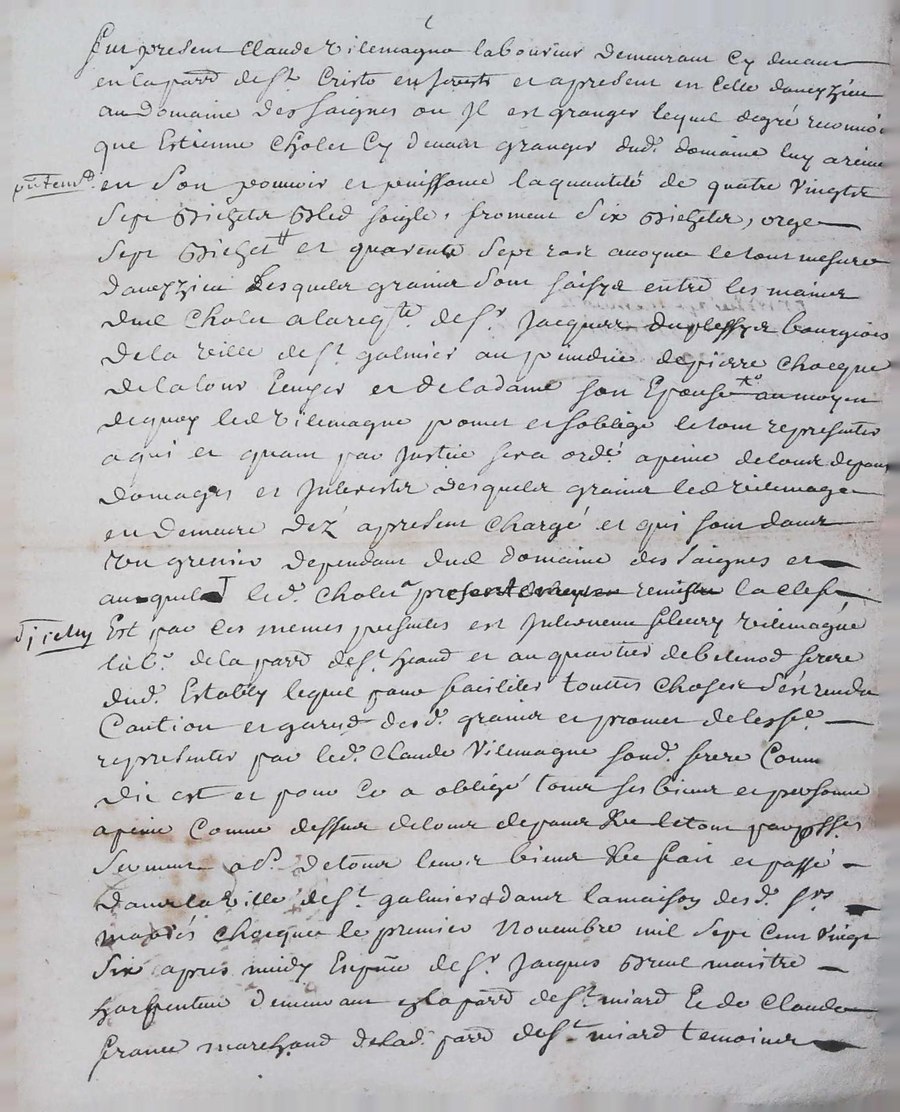 fut present Claude Vilemagne laboureur demeurant cy devant
en la parr. de St Cristo en et apresent en celle daveyzieu
au domaine des Saignes ou Il est granger lequel de gré reconnoi
que Estienne Cholet Cy devant granger dud. domaine luy a remi
en Son pouvoir et puissance la quantité de quatre vingts
Sept Bichets Bled soigle, froment Six Bichets, orge
Sept Bichet et quarente Sept ras avoyne le tout mesure
daveyzieu Lesquels grains sont saisys entre les mains
dud Cholet a la reqte. de Sr. Jacques duplessys bourgeois
de la ville de St galmier au de pierre Chacque
de la tour et de la dame son Epouse au moyen
de quoy led Vilemagne promet et soblige le tout representer
a qui et quant par Justice sera ordé. a peine de tous depans
domages et Interests desquels grains led vilemagne
en demeure dez apresent chargé et qui sont dans
un grenier dependant dud domaine des Saignes et
auquel led. Cholet remis la clef
Est par ces memes presentes est Intervenu fleury vilemagne
lab. de la parr de St heand et au quartier de belmod frere
dud. Estably lequel pour faciliter touttes choses s'est rendu
Caution et garend desd. grains et promet de les fe.
representer par led. Claude Vilemagne sond. frere Comme
dit est et pour Ce a obligé tous ses biens et personne
a peine Comme dessus de tous depans &c le tout par
serment de tous leurs biens &c fait et passé
dans la ville de St galmier & dans la maison desd. Srs
mariés Chacque le premier Novembre mil Sept Cent vingt
Six apres midy En pnce de Sr. Jacques maitre
Charpentier demeurant en la parr de St miard Et de Claude
france marchand de lad. parr de St miard temoins